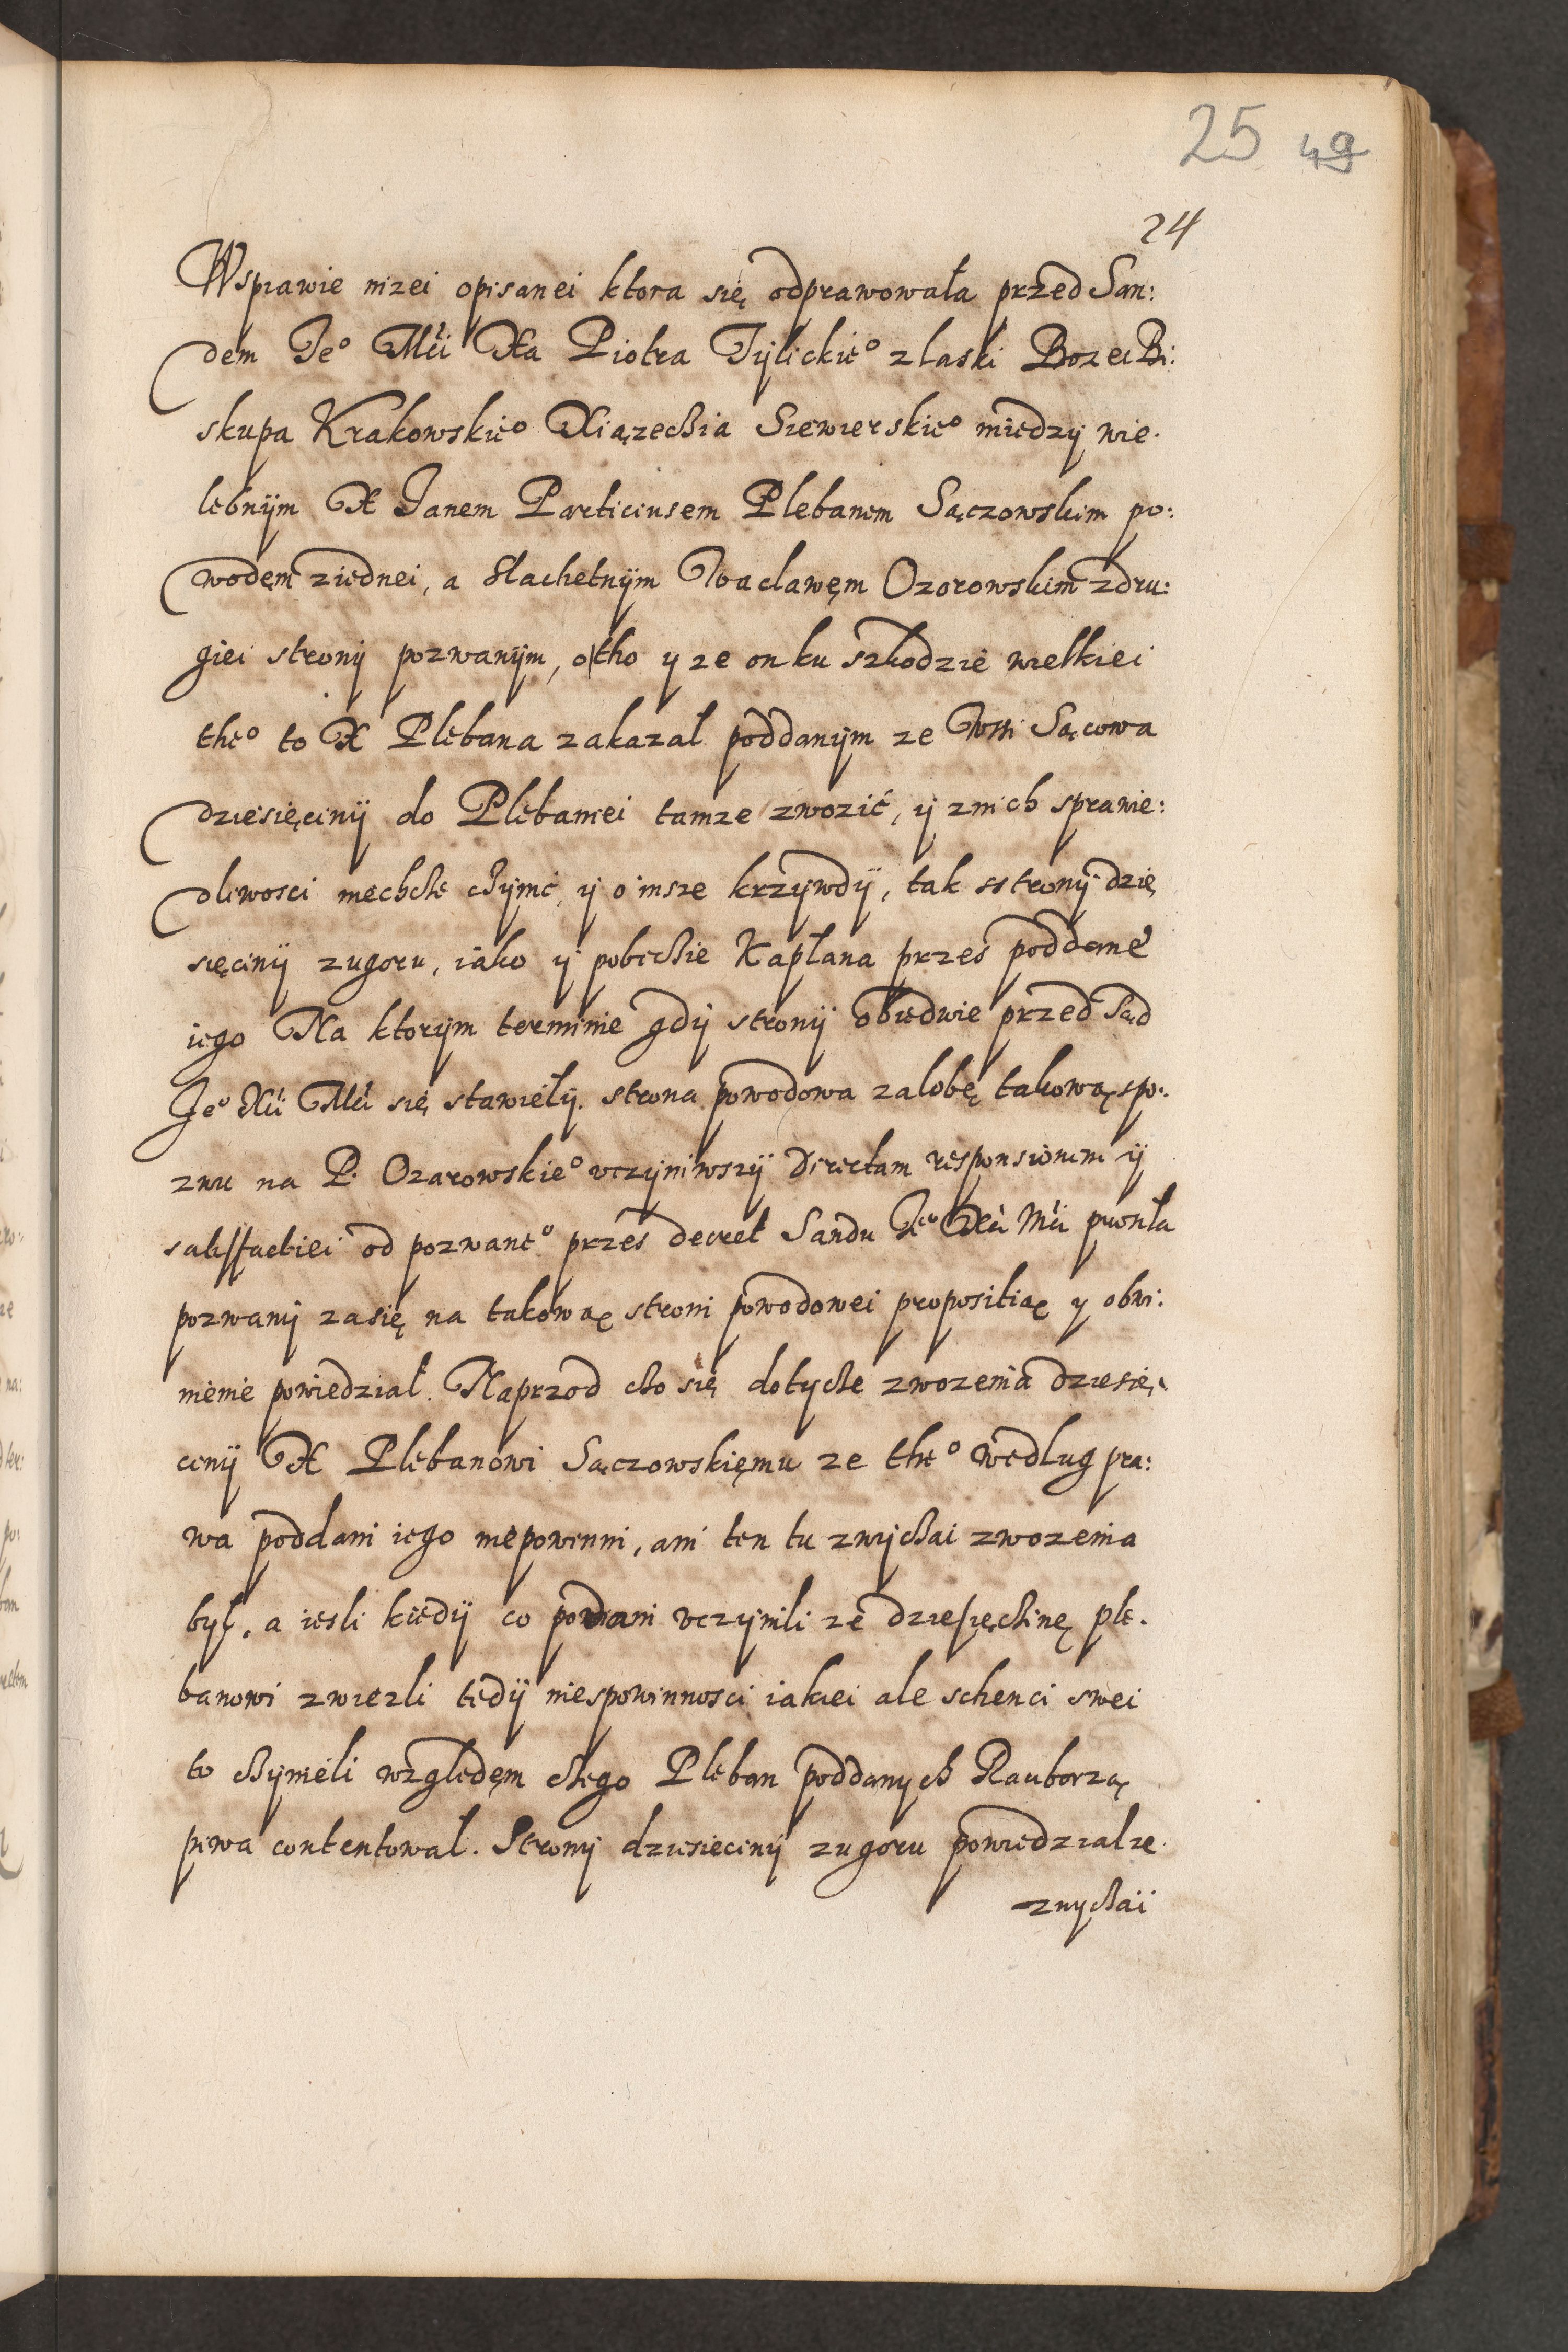 25 49
24
Wsprawie nizei opisanei ktora się odprawowała przed San:
dem Je⁰ Mći Xa Piotra Tÿlickie⁰ z laski Bozei Bi:
skupa Krakowskie⁰ Xiązechia Siewierskie⁰ miedzÿ wie.
lebnÿm X Janem Particiusem Plebanem Sączowskim po:
wodęm ziednei, a Slachetnÿm Waclawęm Ozorowskim zdru:
giei stronÿ pozwanÿm, otho y ze on ku szkodzie wielkiei
the⁰ to X Plebana zakazal poddanÿm ze Wsi Sącowa
dziesięcinÿ do Plebaniei tamze zwozić, ÿ znich sprawie:
dliwosci niechche chÿnić, ÿ o insze krzÿwdÿ, tak sstronÿ dzie
sięcinÿ zugoru, iako ÿ pobichie Kapłana przes poddane
iego Na ktorÿm terminie gdÿ stronÿ obiedwie przed Sąd
Je⁰ Xći Mći się stawiełÿ. strona powodowa zalobę takową spo:
zwu na P. Ozarowskie⁰ vczÿniwszÿ directam responsionem ÿ
satisfactiei od pozwane⁰ przes decret Sandu Je⁰ Xći Mći prosiła
pozwanÿ zasię na takową stroni powodowei propositią y obwi:
nienie powiedzial. Naprzod cho się dotyche zwozenia dziesię,
cinÿ X Plebanowi Sączowskięmu ze the⁰ wedlug pra:
wa poddani iego niepowinni, ani ten tu zwÿchai zwozenia
był, a iesli kiedÿ co poddani vczÿnili ze dziesięchinę ple.
banowi zwiezli tedÿ niespowinnosci iakiei ale schenci swei
to chÿnieli względęm chego Pleban poddanych Rauborzą
piwa contentowal. Stronÿ dziesiecinÿ zugoru powiedzial ze.
zwychaÿ